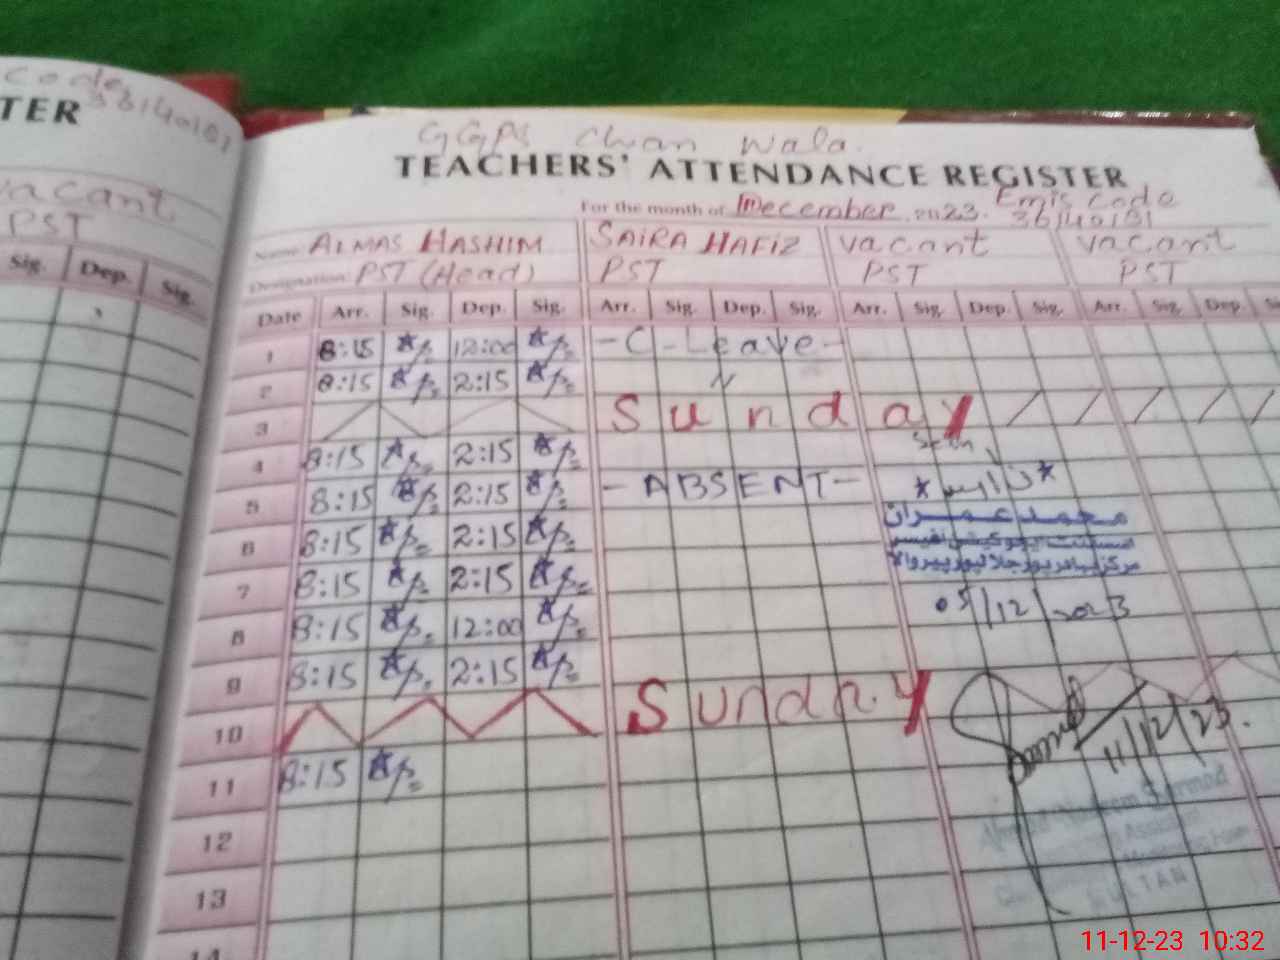 code
36140181
TER
vacant
PST
Sig. Dep. Sig.
GGPS Chan Wala.
TEACHERS' ATTENDANCE REGISTER
For the month of December 2023. Emis code
36140181
Name ALMAS HASHIM SAIRA HAFIZ vacant vacant
Designation PST (Head) PST PST PST
Date Arr. Sig. Dep. Sig. Arr. Sig. Dep. Sig. Arr. Sig. Dep. Sig. Arr. Sig. Dep.
1 8:15 12:00 -C-Leave-
2 8:15 2:15 "
3 Sunday
4 8:15 2:15 Seen
5 8:15 2:15 -ABSENT-
محمد عمران
6 8:15 2:15
7 8:15 2:15
8 8:15 12:00 05/12/2023
9 8:15 2:15
10 Sunday
11 8:15 11/12/23.
12
13
14
MULTAN
11-12-23 10:32